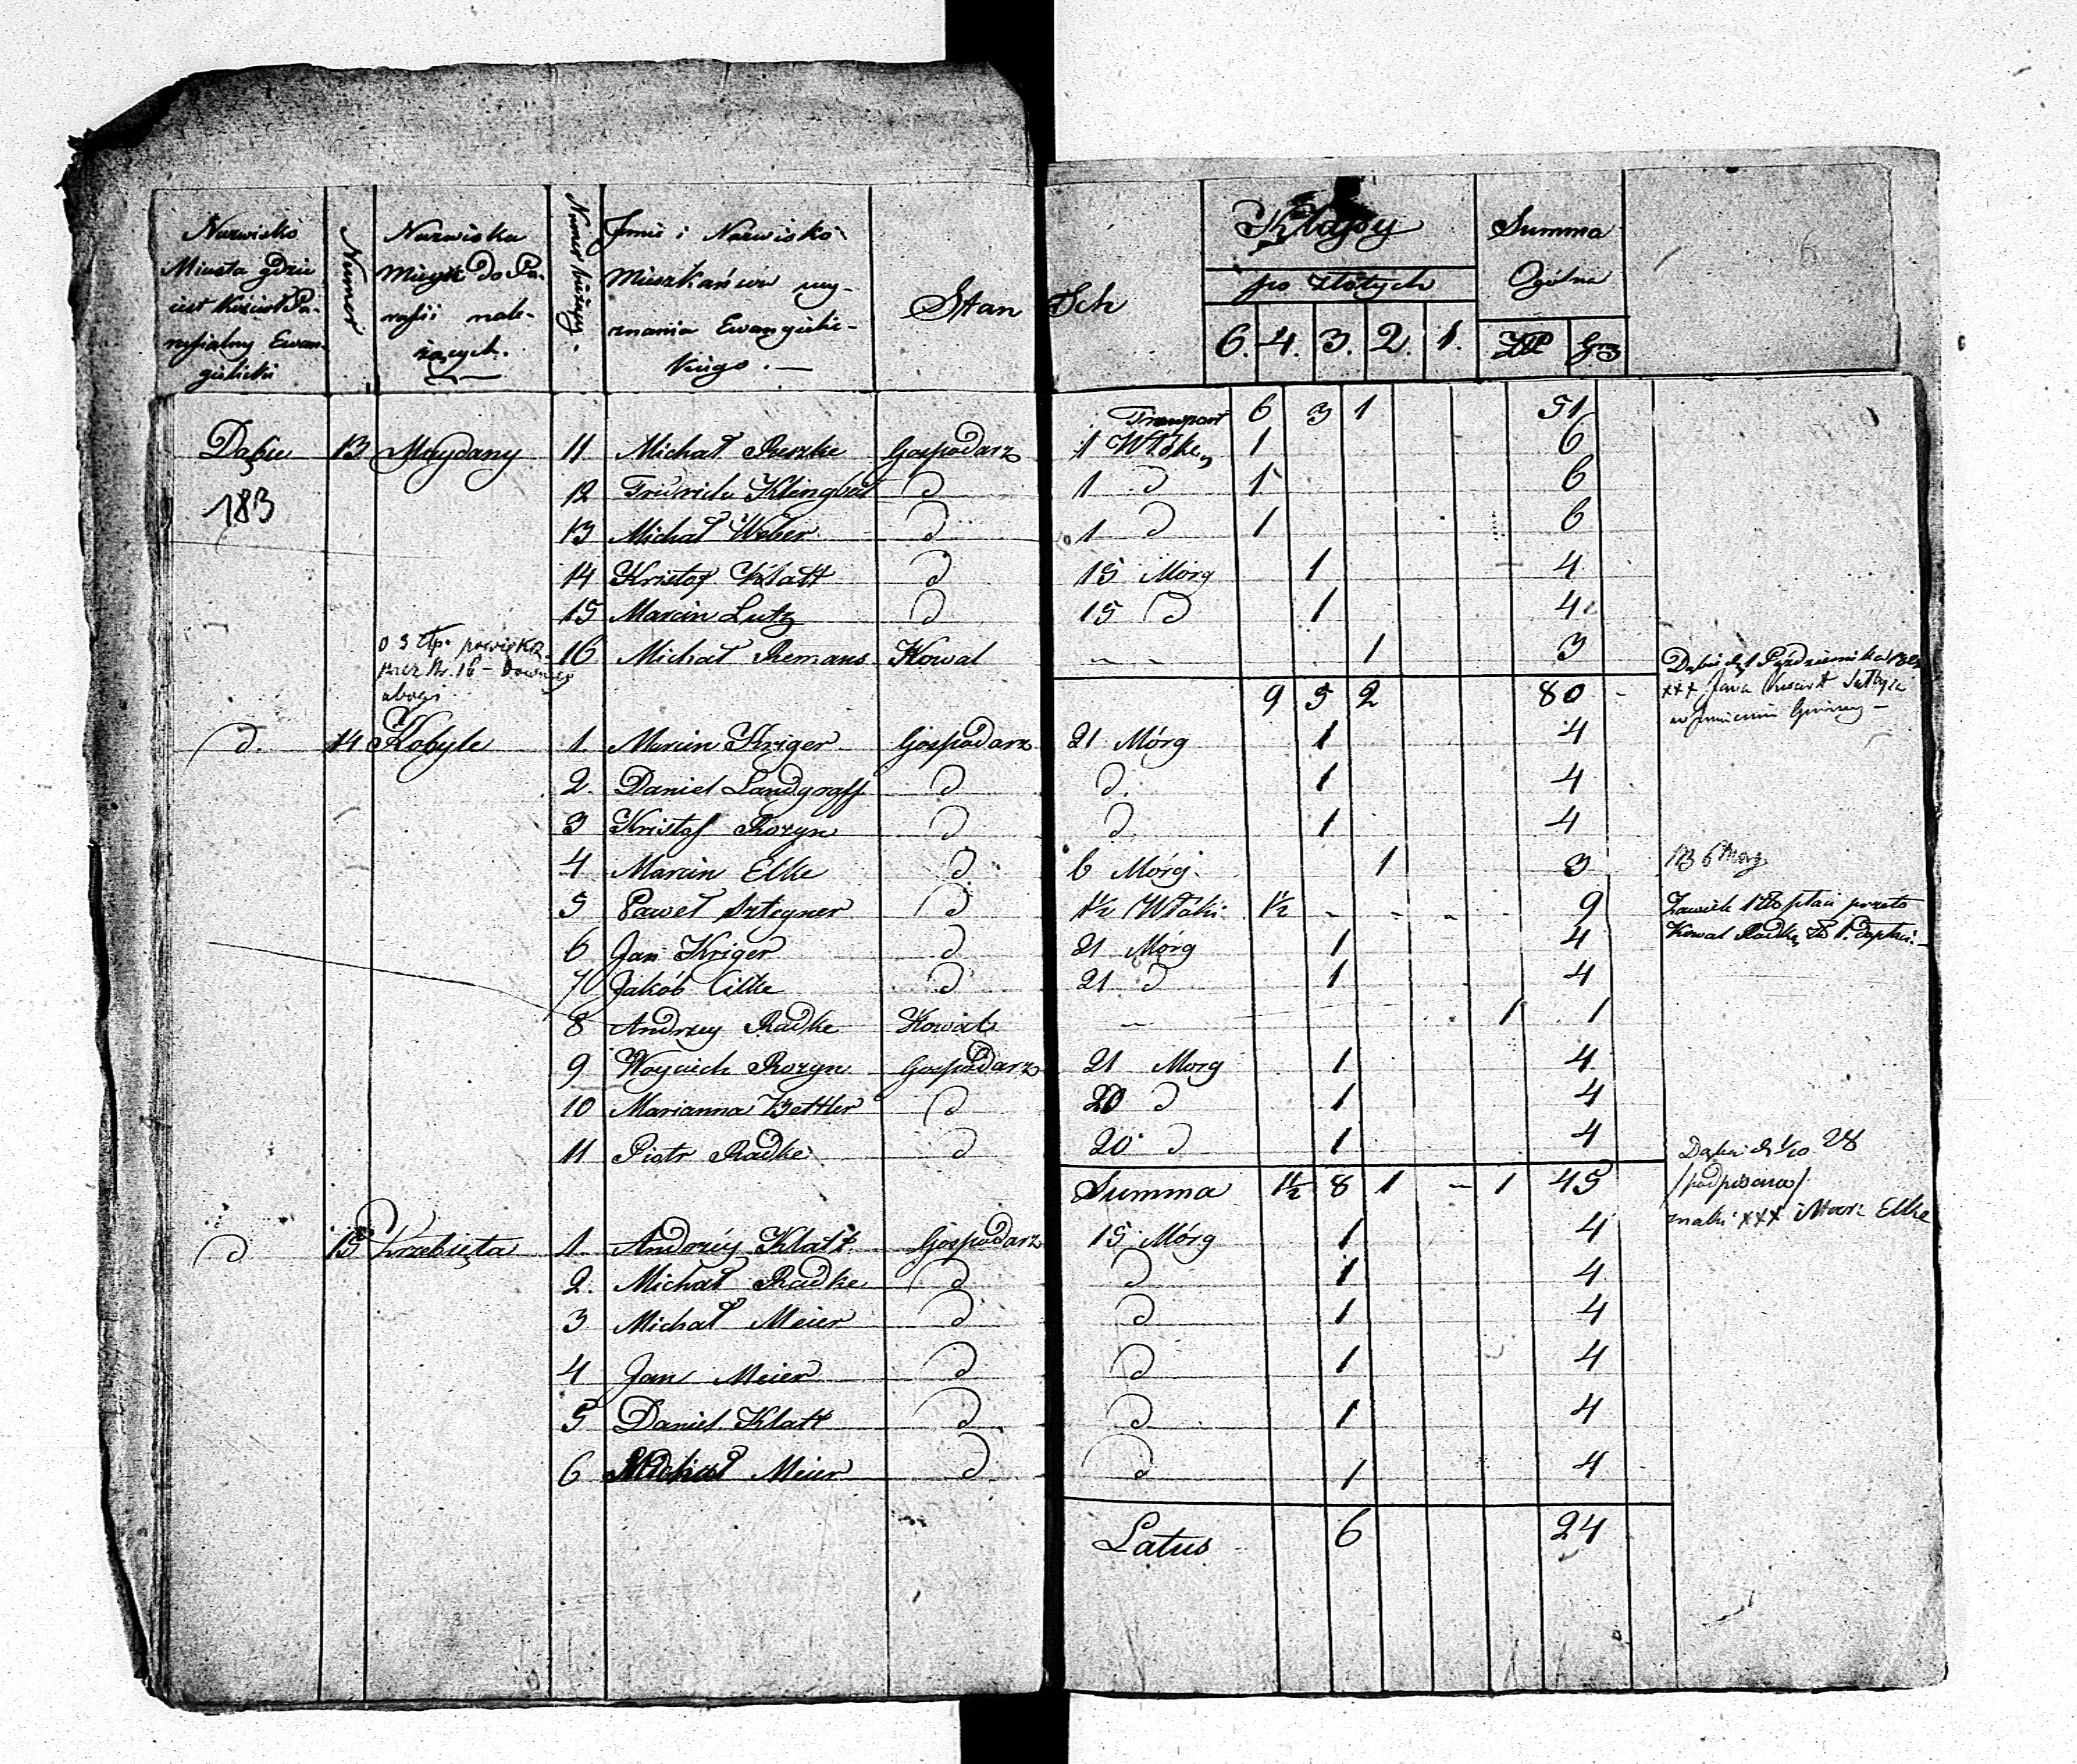 Nazwisko Miasta gdzie iest kościół Pa-
rafialny Ewan-
gielicki
Numer
Nazwiska Mieysc do Pa-
rafii nale-
żących.
Numer bieżący.
Imie i Nazwisko
Mieszkańców wy-
znania Ewangielic-
kiego. —
Stan Ich
Klassy
po złotych
6. 4. 3. 2. 1.
Summa
Ogólna
Złp Gr
Transport 6 3 1 51
Dąbie 13 Maydany 11 Michał Reszke Gospodarz 1 Włóke 1 6
183
12 Fridrich Klingbeil d 1 d 1 6
13 Michał Weber d 1 d 1 6
14 Kristof Klatt d 15 Mórg 1 4
15 Marcin Lutz d 15 d 1 4
16 Michał Remans Kowal - - 1 3
o 3 złp.
przez Nr. 16 –
9 5 2 80 -
Dąbie d. 1 Października
xxx Jana
d. 14 Kobyle 1. Marcin Kriger Gospodarz 21 Mórg 1 4
2. Daniel Landgraff d d. 1 4
3 Kristof Rozyn d d 1 4
4 Marcin Elke d 6 Mórg. 1 3
6 Morg
5 Paweł Sztegner d 1½ Włóki 1½ - - - - 9
płaci przeto
6 Jan Kriger d 21 Mórg 1 4
Kowal Radke
7 Jakób d 21 d 1 4
8 Andrzey Radke Kowal — 1 1
9 Woyciech Rozyn Gospodarz 21 Morg 1 4
10 Marianna Bettler d 20 d 1 4
11 Piotr Radke d 20 d 1 4
Summa 1½ 8 1 - 1 45
Dąbie d. 1/10 28
/podpisano/
znaki xxx Elke
d 15 1. Andrzéy Klatt Gospodarz 15 Mórg 1 4
2. Michał Radke d d 1 4
3 Michał Meier d d 1 4
4 Jan Meier d d 1 4
5 Daniel Klatt d d 1 4
6 Michał Meier d d 1 4
Latus 6 24